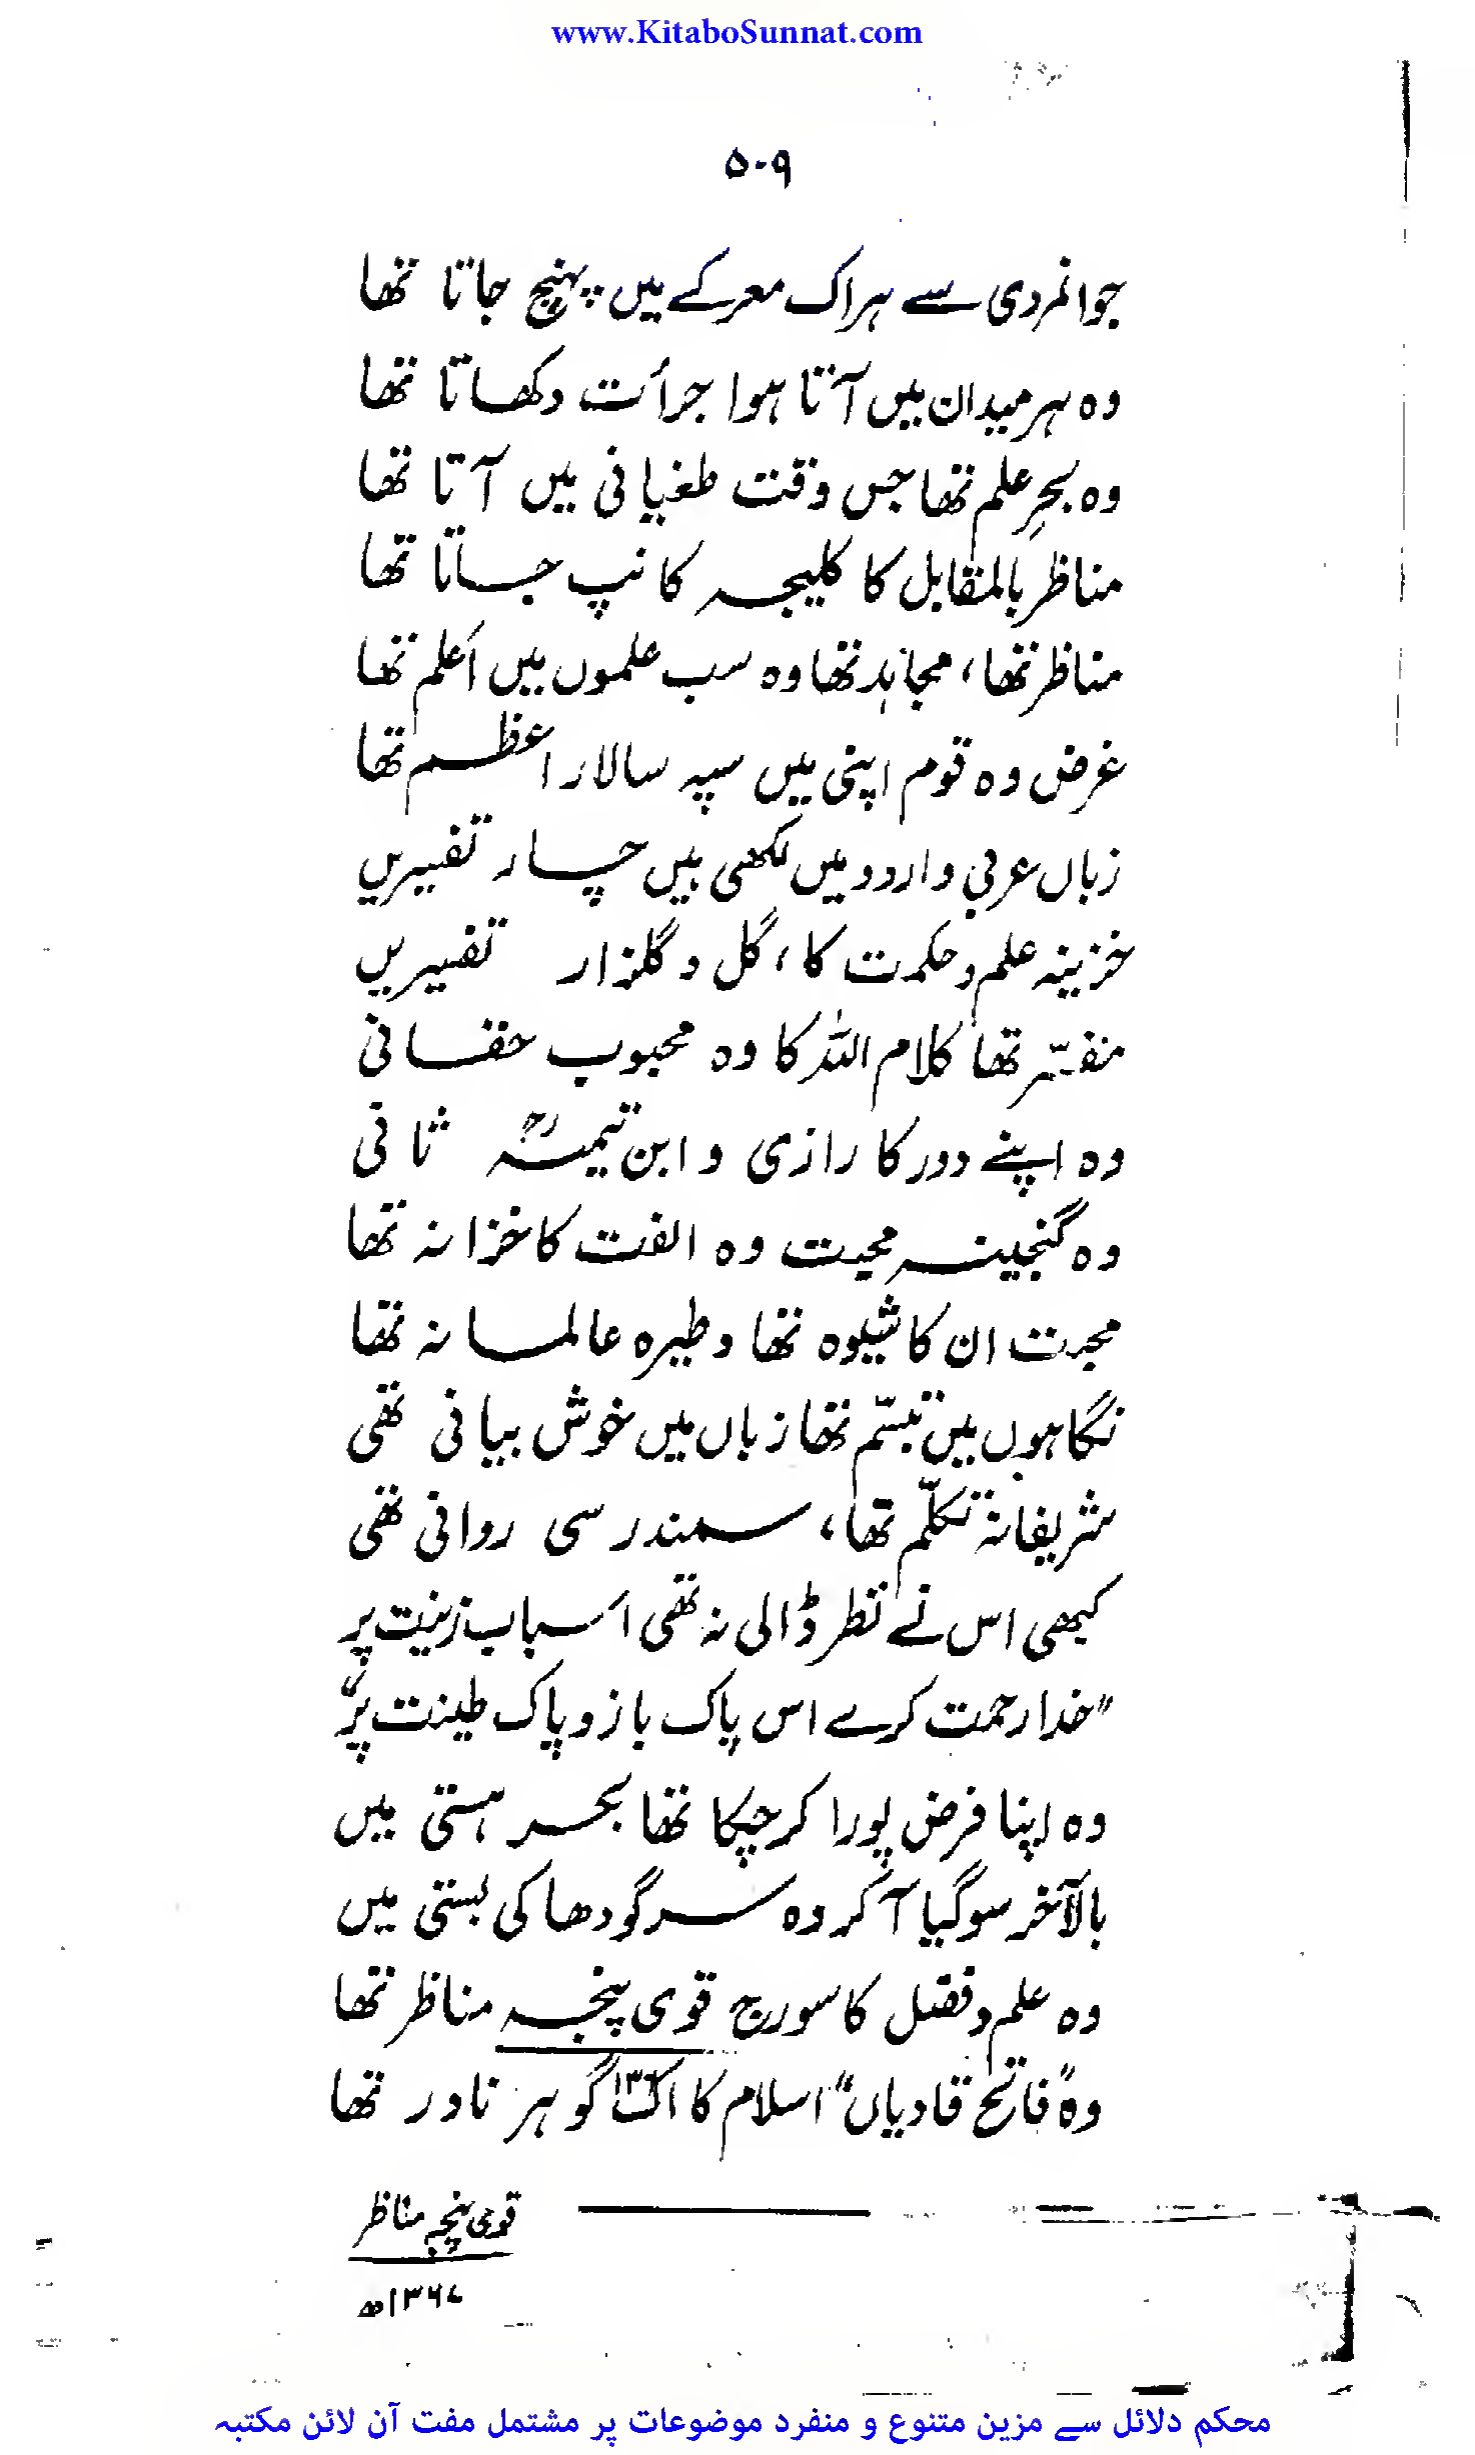 www.KitaboSunnat.com
۵۰۹
جوانمردی سے ہر اک معرکے میں پہنچ جاتا تھا
وہ ہر میدان میں آتا ہوا جرأت دکھاتا تھا
وہ بحرِ علم تھا جس وقت طغیانی میں آتا تھا
مناظر بالمقابل کا کلیجہ کانپ جاتا تھا
مناظر تھا، مجاہد تھا وہ سب علموں میں اَعلم تھا
غرض وہ قوم اپنی میں سپہ سالار اعظم تھا
زباں عربی و اردو میں لکھی ہیں چار تفسیریں
خزینہ علم و حکمت کا، گل و گلزار تفسیریں
مفسّر تھا کلام اللہ کا وہ محبوب حقانی
وہ اپنے دور کا رازی و ابن تیمیہؒ ثانی
وہ گنجینہ محبت وہ الفت کا خزانہ تھا
محبت ان کا شیوہ تھا وطیرہ عالمانہ تھا
نگاہوں میں تبسّم تھا زباں میں خوش بیانی تھی
شریفانہ تکلّم تھا، سمندر سی روانی تھی
کبھی اس نے نظر ڈالی نہ تھی اسباب زینت پر
"خدا رحمت کرے اس پاک باز و پاک طینت پر"
وہ اپنا فرض پورا کر چکا تھا بحر ہستی میں
بالآخر سو گیا آ کر وہ سرگودھا کی بستی میں
وہ علم و فضل کا سورج قوی پنجہ مناظر تھا
وہ "فاتح قادیاں" اسلام کا اک گوہر نادر تھا
قوی پنجہ مناظر
۱۳۶۷ھ
محکم دلائل سے مزین متنوع و منفرد موضوعات پر مشتمل مفت آن لائن مکتبہ